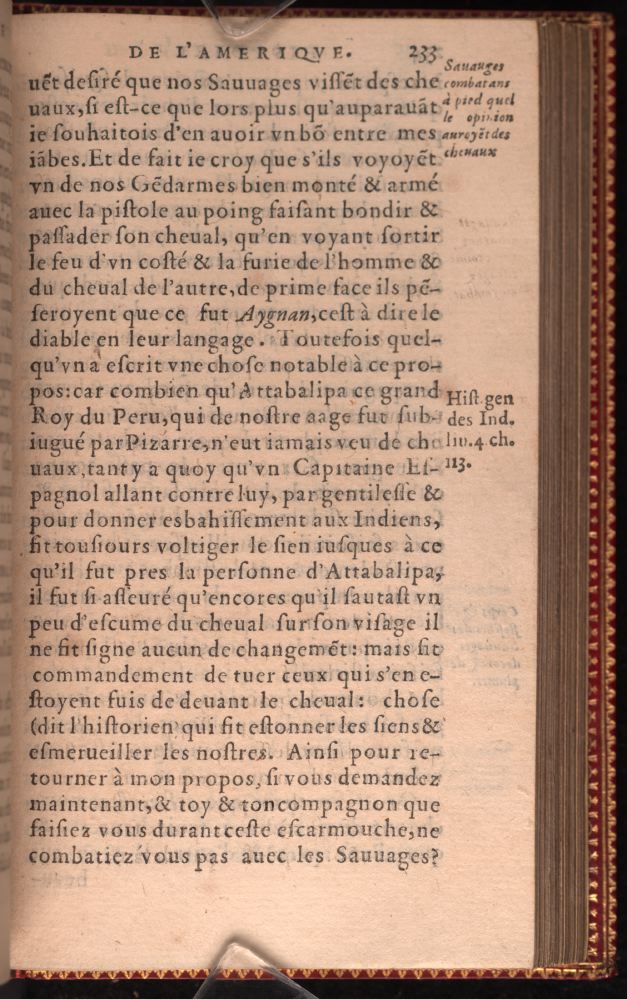 DE L'AMERIQVE. 233
uẽt desiré que nos Sauuages vissẽt des che
uaux, si est-ce que lors plus qu'auparauãt
ie souhaitois d'en auoir vn bõ entre mes
iãbes. Et de fait ie croy que s'ils voyoyẽt
vn de nos Gẽdarmes bien monté & armé
auec la pistole au poing faisant bondir &
passader son cheual, qu'en voyant sortir
le feu d'vn costé & la furie de l'homme &
du cheual de l'autre, de prime face ils pẽ-
seroyent que ce fut Aygnan, cest à dire le
diable en leur langage. Toutefois quel-
qu'vn a escrit vne chose notable à ce pro-
pos: car combien qu'Attabalipa ce grand
Roy du Peru, qui de nostre aage fut sub-
iugué par Pizarre, n'eut iamais veu de che
uaux, tant y a quoy qu'vn Capitaine Es-
pagnol allant contre luy, par gentilesse &
pour donner esbahissement aux Indiens,
fit tousiours voltiger le sien iusques à ce
qu'il fut pres la personne d'Attabalipa,
il fut si asseuré qu'encores qu'il sautast vn
peu d'escume du cheual sur son visage il
ne fit signe aucun de changemẽt: mais fit
commandement de tuer ceux qui s'en e-
stoyent fuis de deuant le cheual: chose
(dit l'historien) qui fit estonner les siens &
esmerueiller les nostres. Ainsi pour re-
tourner à mon propos, si vous demandez
maintenant, & toy & ton compagnon que
faisiez vous durant ceste escarmouche, ne
combatiez vous pas auec les Sauuages?
Sauuages
combatans
à pied quel
le opinion
auroyẽt des
cheuaux
Hist. gen
des Ind.
liu. 4. ch.
113.